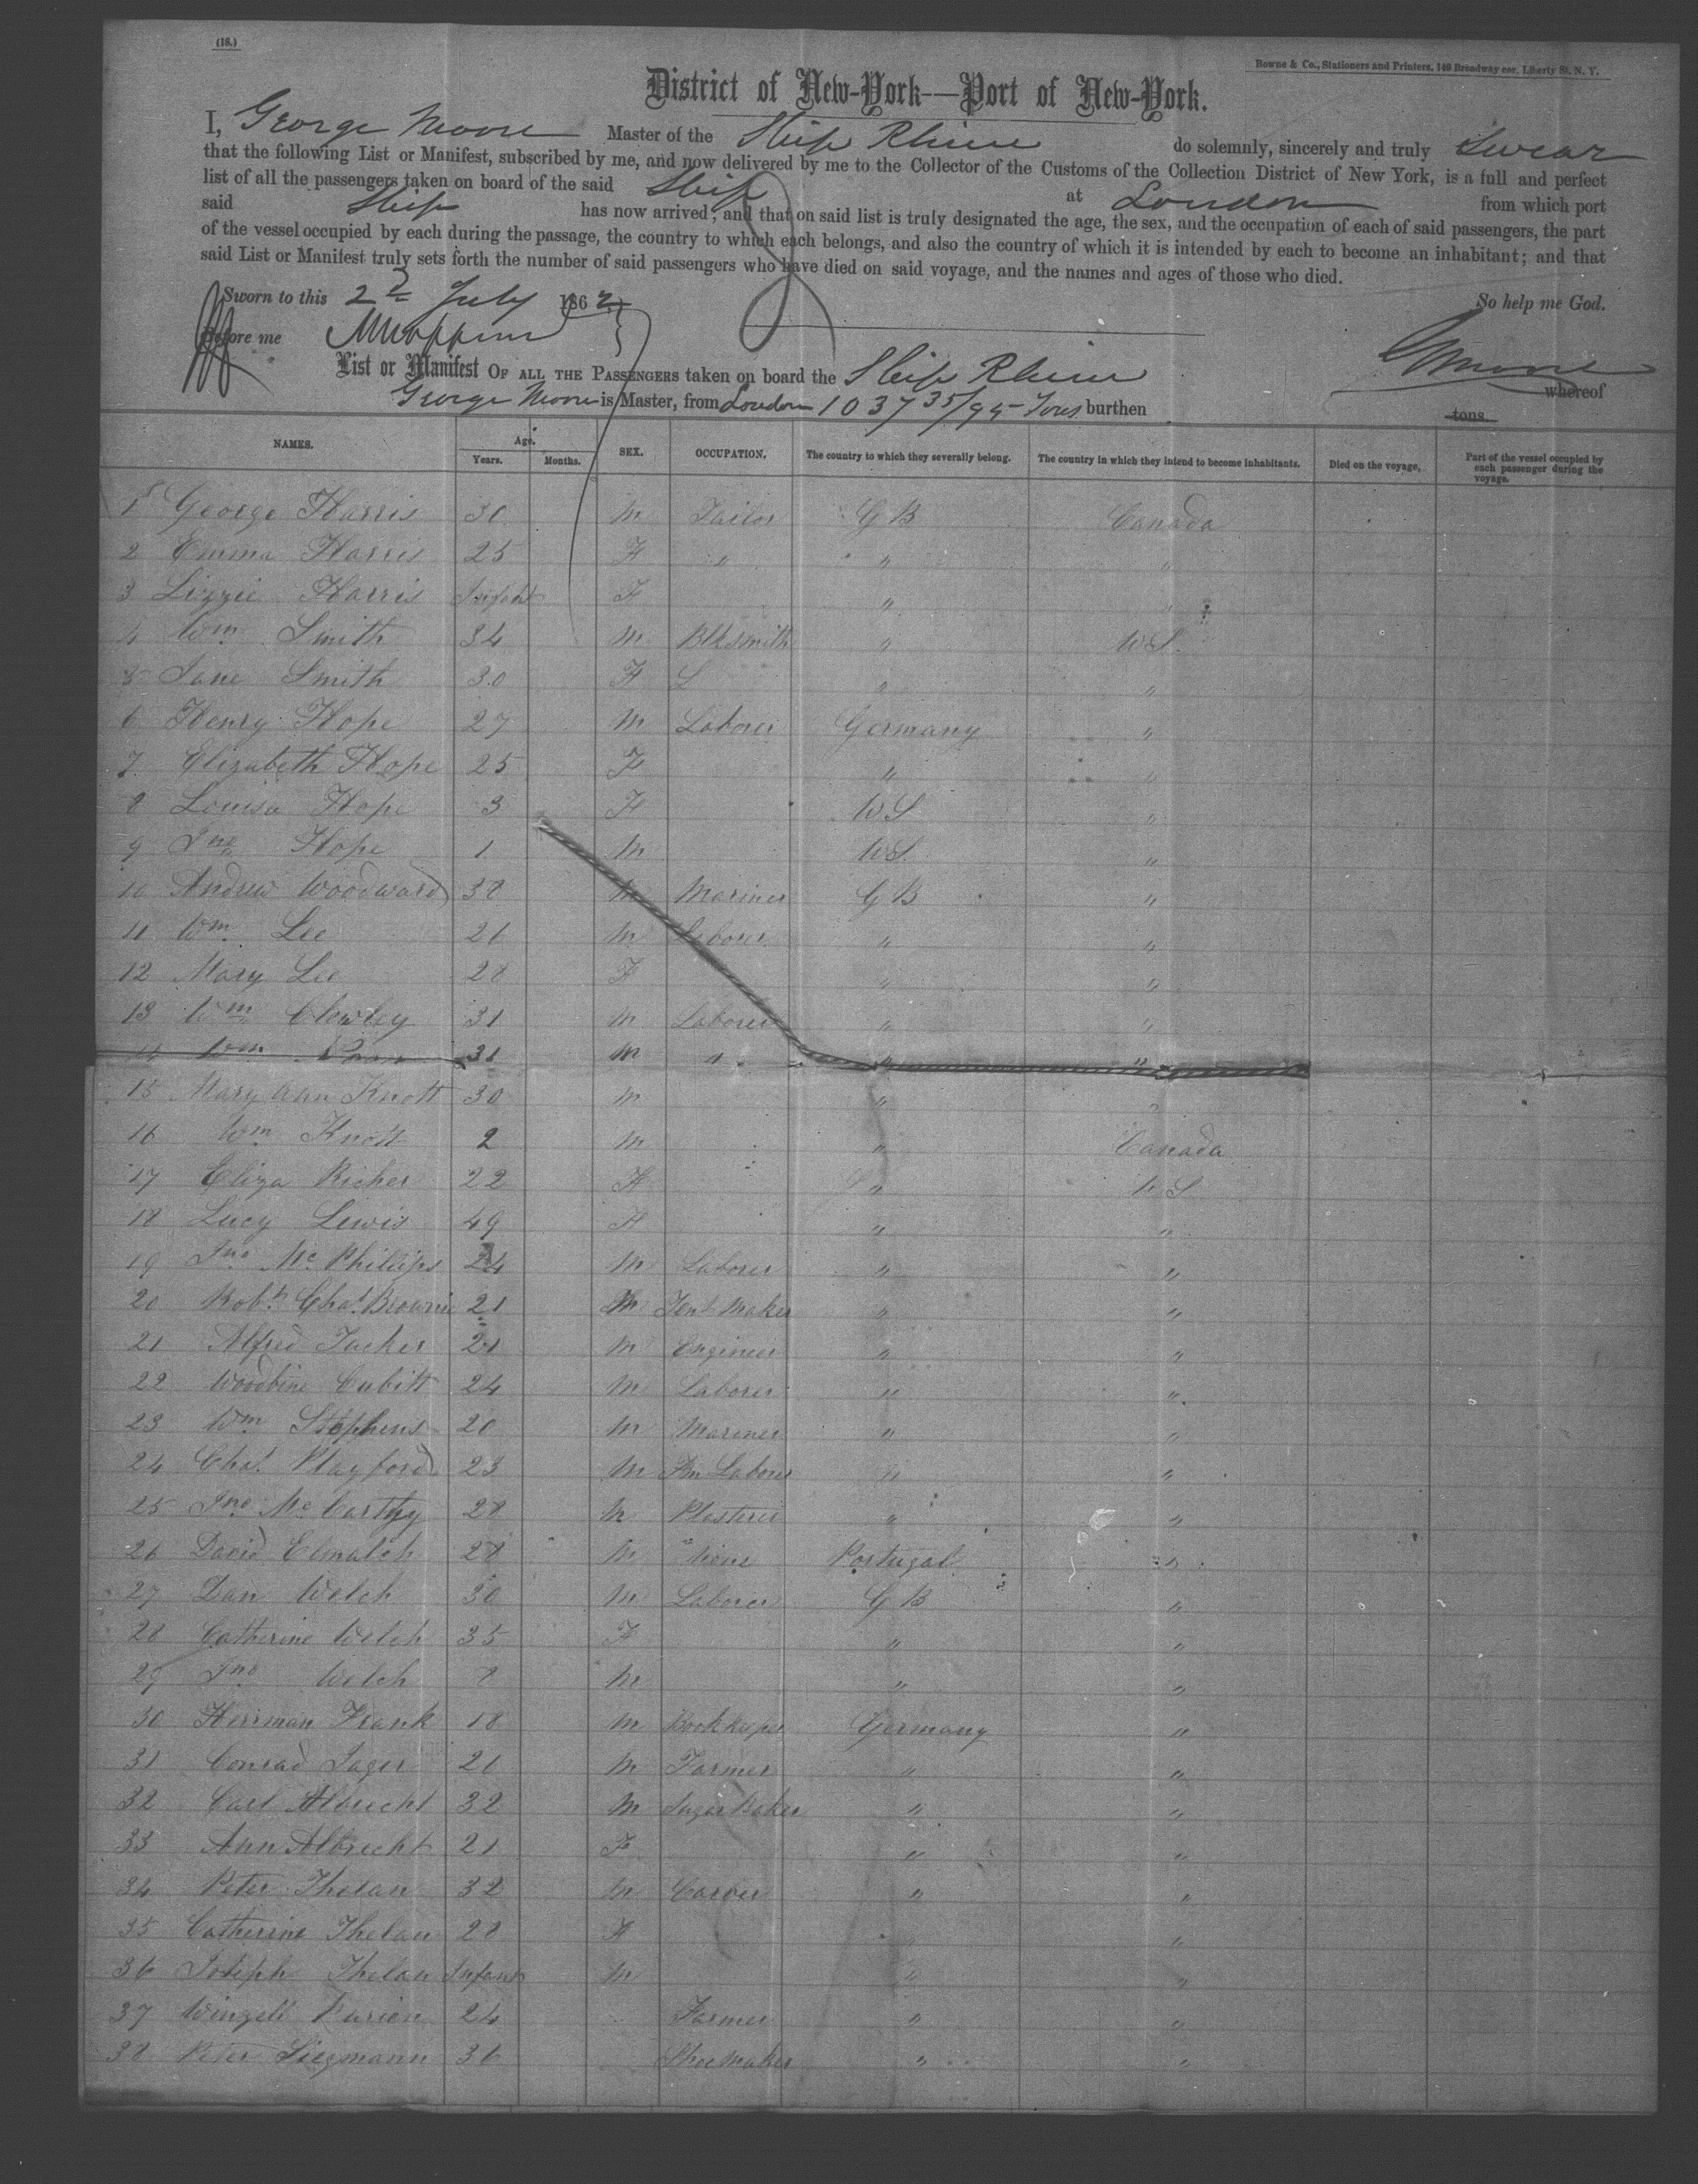 (18.)
Bowne & Co., Stationers and Printers, 149 Broadway cor. Liberty St. N. Y.
District of New-York—Port of New-York.
I, George Moore Master of the Ship Rhine do solemnly, sincerely and truly Swear
that the following List or Manifest, subscribed by me, and now delivered by me to the Collector of the Customs of the Collection District of New York, is a full and perfect
list of all the passengers taken on board of the said Ship at London from which port
said Ship has now arrived; and that on said list is truly designated the age, the sex, and the occupation of each of said passengers, the part
of the vessel occupied by each during the passage, the country to which each belongs, and also the country of which it is intended by each to become an inhabitant; and that
said List or Manifest truly sets forth the number of said passengers who have died on said voyage, and the names and ages of those who died.
Sworn to this 2d July 1862 So help me God.
Before me GMoore
List or Manifest OF ALL THE PASSENGERS taken on board the Ship Rhine whereof
George Moore is Master, from London 1037 35/95 Tons burthen tons
NAMES. Age. Years. Months. SEX. OCCUPATION. The country to which they severally belong. The country in which they intend to become inhabitants. Died on the voyage, Part of the vessel occupied by each passenger during the voyage.
1 George Harris 30 M Tailor GB Canada
2 Emma Harris 25 F " " "
3 Lizzie Harris Infant F " "
4 Wm Smith 34 M Blksmith " US.
5 Jane Smith 30 F " "
6 Henry Hope 27 M Laborer Germany "
7 Elizabeth Hope 25 F " "
8 Louisa Hope 3 F US "
9 Jno Hope 1 M US "
10 Andrew Woodward 38 M Mariner GB "
11 Wm Lee 21 M Laborer " "
12 Mary Lee 28 F " "
13 Wm Clewley 31 M Laborer " "
14 Wm 31 M " " "
15 Mary Ann Knott 30 M " "
16 Wm Knott 2 M " Canada
17 Eliza Richer 22 F " US
18 Lucy Lewis 49 F " "
19 Jno McPhillips 24 M Laborer " "
20 Robt Chas Brownie 21 M Tent Maker " "
21 Alfred Tucker 21 M Engineer " "
22 Woodbine Cubitt 24 M Laborer " "
23 Wm Stephens 20 M Mariner " "
24 Chas Playford 23 M Fm Laborer " "
25 Jno McCarthy 28 M Plasterer " "
26 David Elmalch 28 M None Portugal "
27 Dan Welch 30 M Laborer GB "
28 Catherine Welch 35 F " "
29 Jno Welch 8 M " "
30 Herrman Frank 18 M Bookkeeper Germany "
31 Conrad Jager 21 M Farmer " "
32 Carl Albrecht 32 M Sugar Baker " "
33 Ann Albrecht 21 F " "
34 Peter Thelan 32 M Carver " "
35 Catherine Thelan 28 F "
36 Joseph Thelan Infant M " "
37 Wingell 24 Farmer " "
38 Peter Siegmann 36 Shoe Maker " "